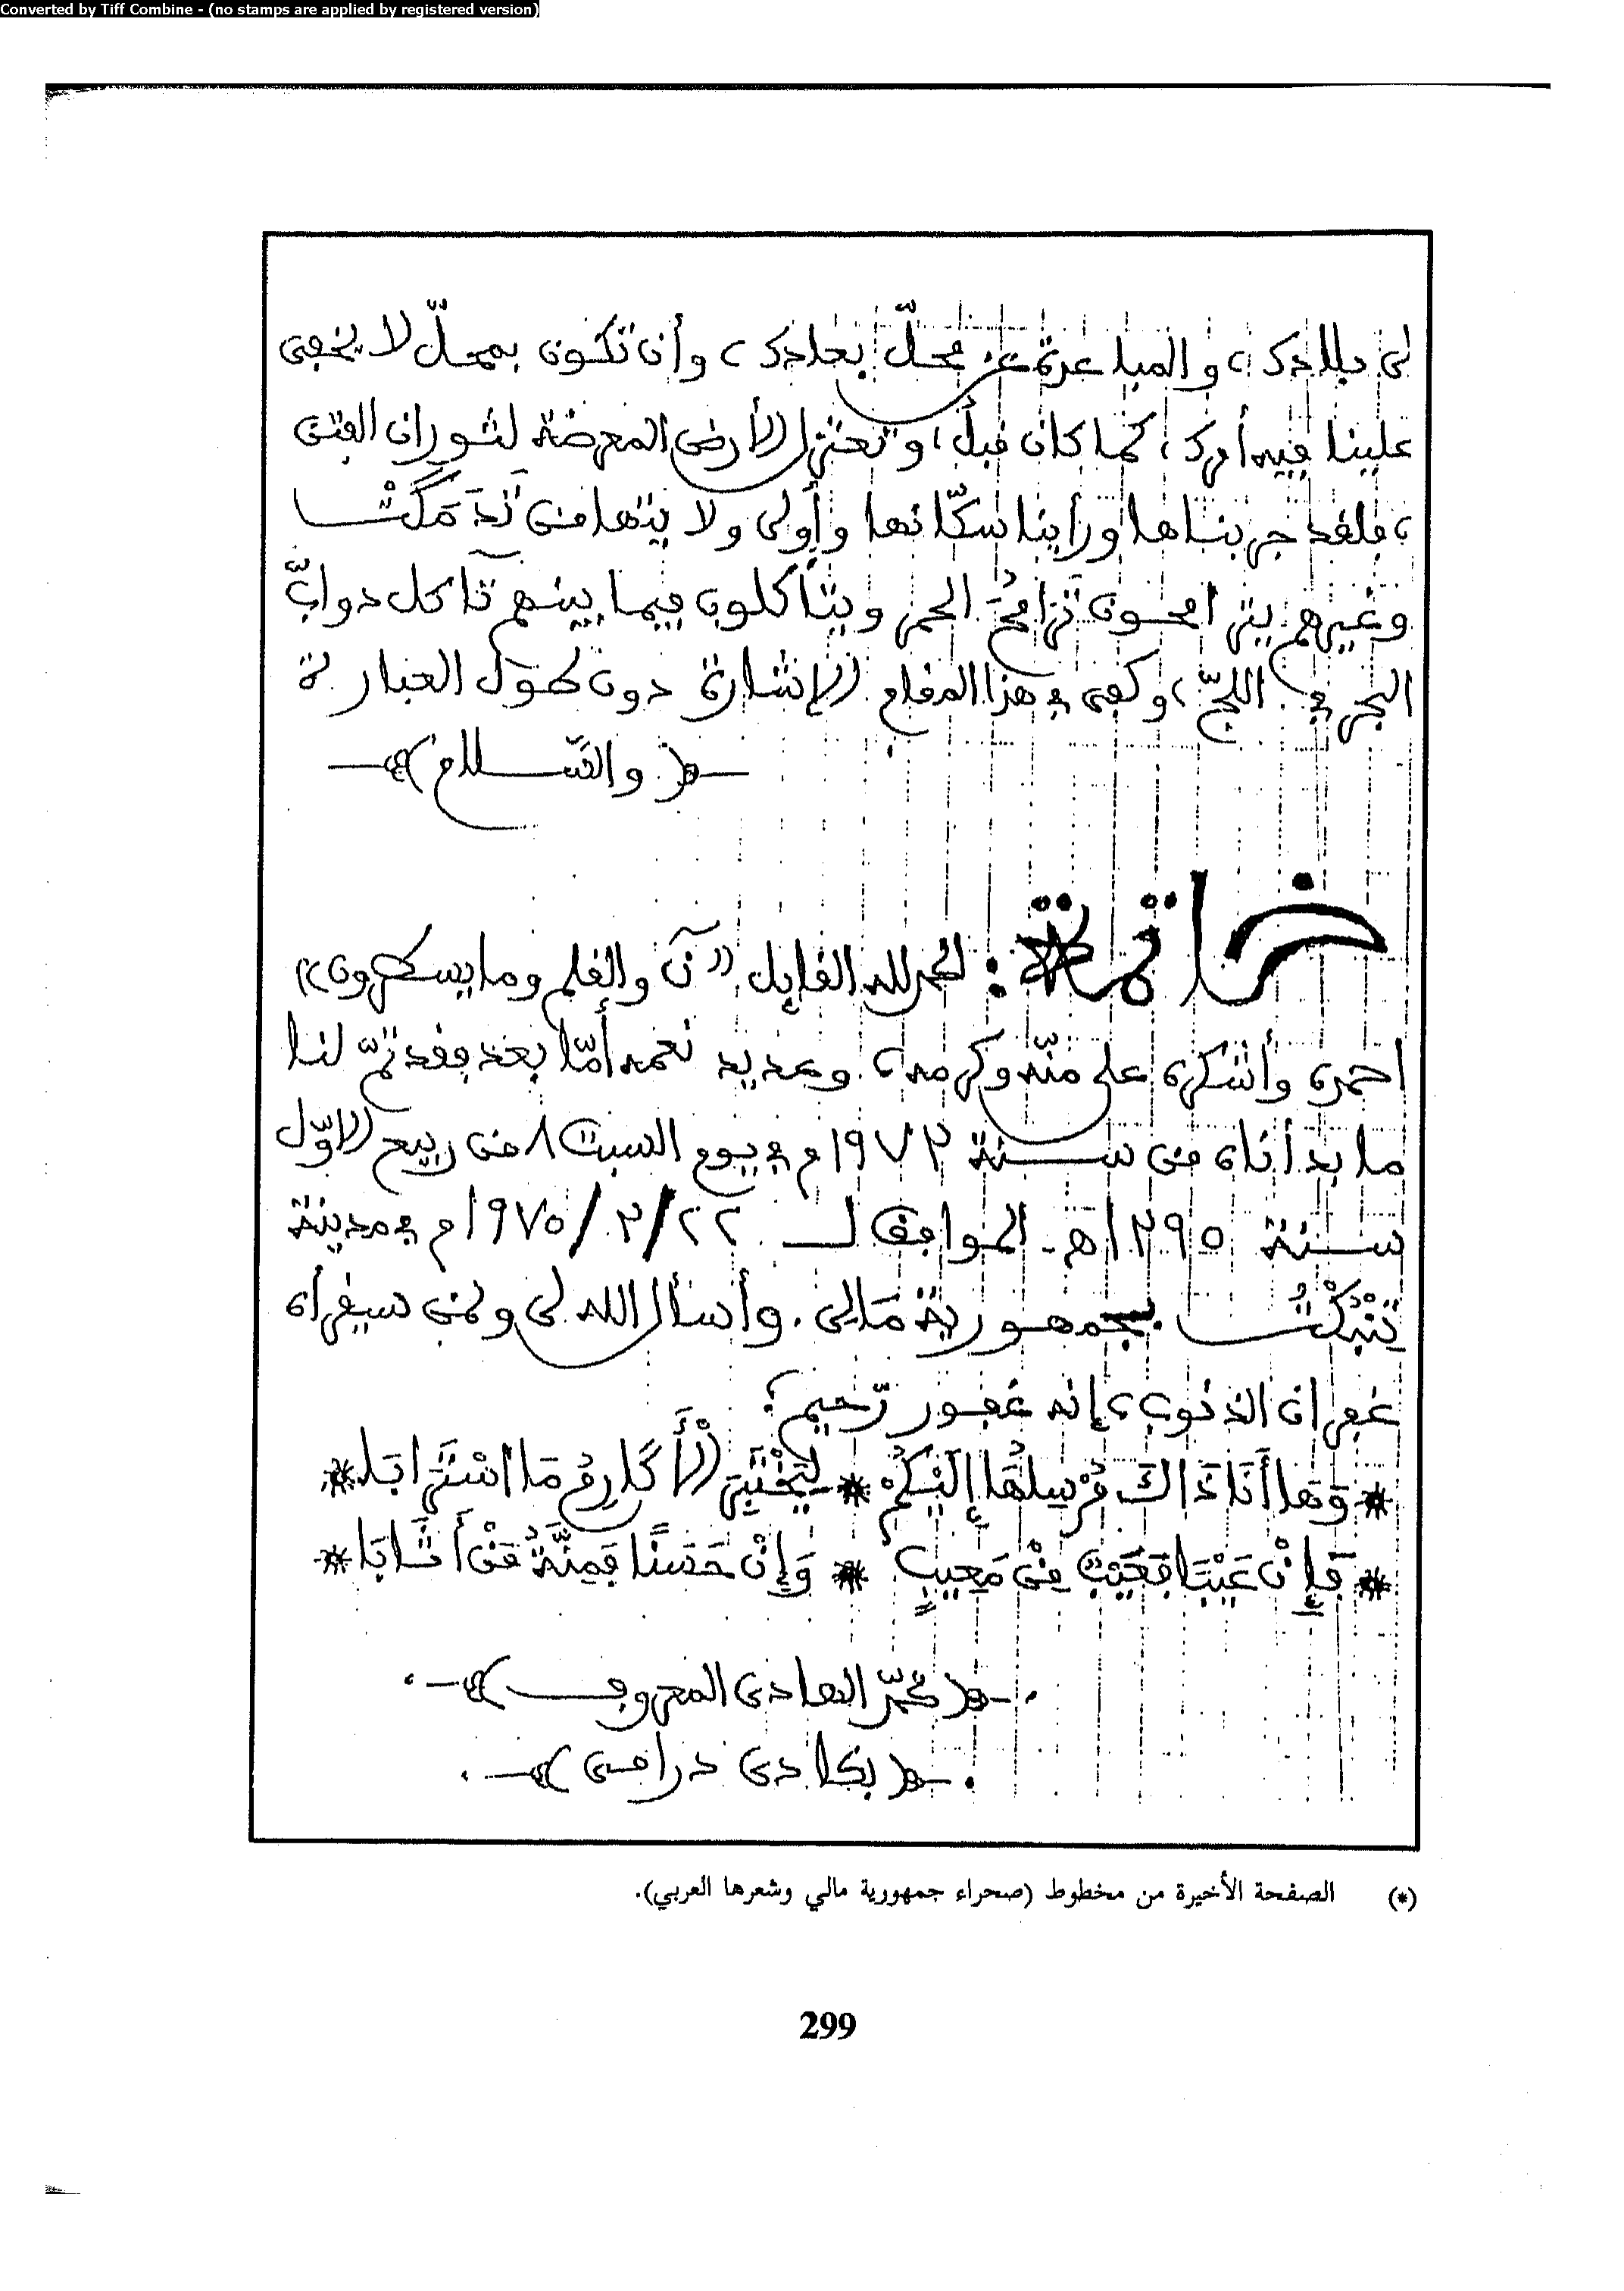 Converted by Tiff Combine - (no stamps are applied by registered version)
لى بلادك، والمباعدة عن محلّ بعادك، وأن تكون بمحلّ لا يخفى
علينا فيه أمرك، كما كان قبل، وتعتزل الأرض المعرضة لثوران الفتن
، فلقد جربناها ورأينا سكّانها وأولى ولا يتها من تَدَمَكّتْ
وغيرهم يتزامحون تزامُحَ الحمر ويتأكلون فيما بينهم تآكل دوابّ
البحر في اللجّ، وكفى في هذا المقام الإشارة دون طول العبارة
والسّلام
خاتمة: الحمد لله القايل «ن والقلم وما يسطرون»
احمده وأشكره على منّه وكرمه، وعديد نعمه أمّا بعد فقد تمّ لنا
ما بدأناه من سنة ١٩٧٣م في يوم السبت ٨ من ربيع الاوّل
سنة ١٣٩٥هـ الموافق لـ ٢٢/٣/١٩٧٥م في مدينة
تنبكتُ بجمهورية مَالِى. وأسأل الله لى ولمن سيقرأه
غفران الذنوب، إنه غفور رّحيم؛
* وَهَا أَنَا ذَاكَ مُرْسِلُهَا إِلَيْكُمْ * لِيَخْتَبِرَ الْأَكَارِمُ مَا اسْتَرَابَا *
* فَإِنْ عَيْبًا فَعَيْبٌ مِنْ مَعِيبٍ * وَإِنْ حَسَنًا فَمِنَّةُ مَنْ أَثَابَا *
محمّد الهادى المعروف
بكادى درامى
(*) الصفحة الأخيرة من مخطوط (صحراء جمهورية مالي وشعرها العربي).
299